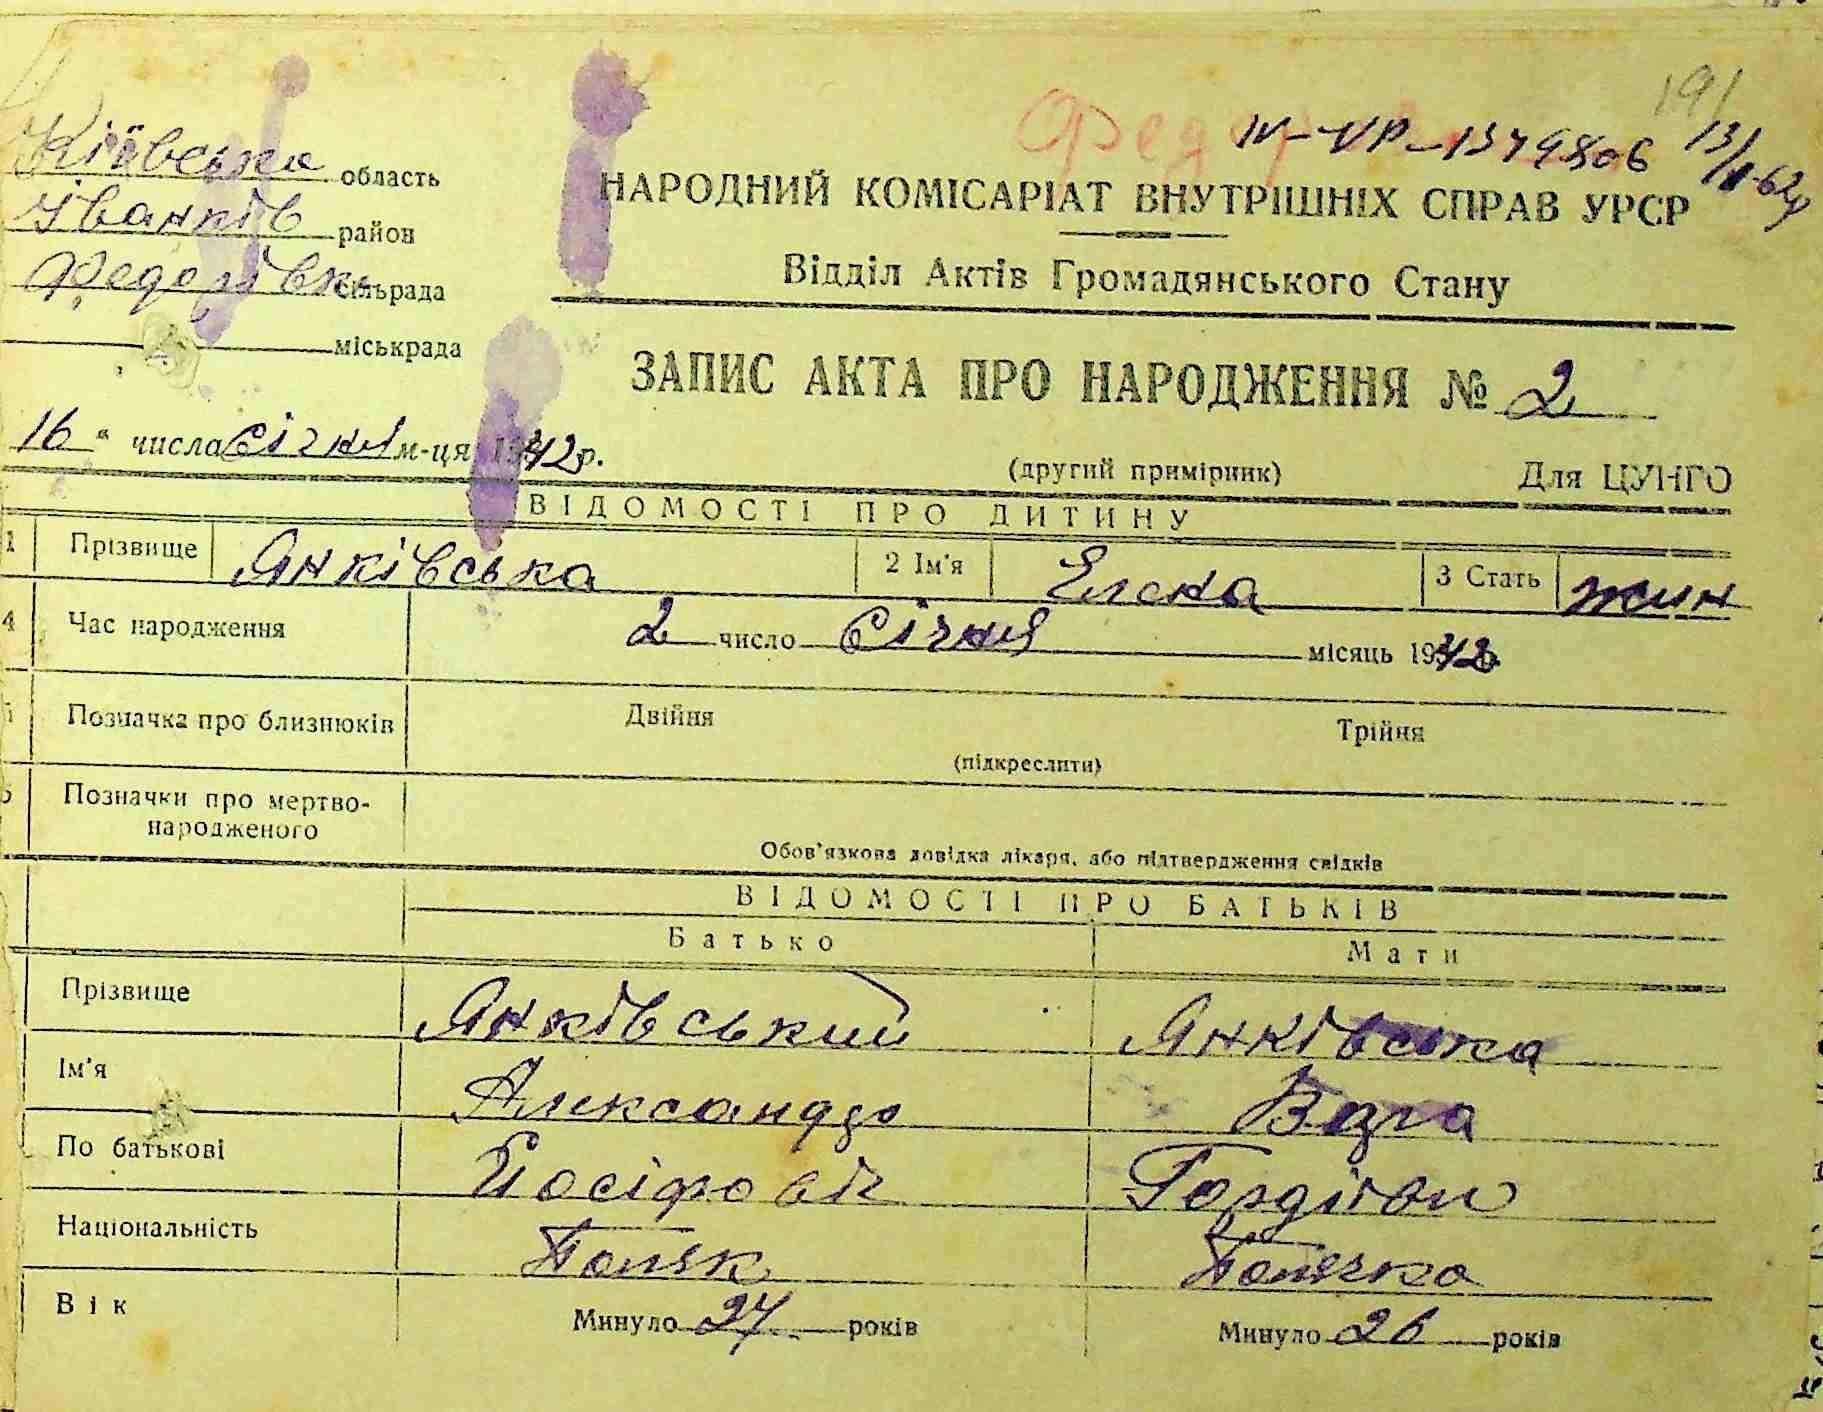 191
Федорівка
IV-УР-1379806 13/II-62р
Київська область
Іванків район
Федорівка сільрада
міськрада
НАРОДНИЙ КОМІСАРІАТ ВНУТРІШНІХ СПРАВ УРСР
Відділ Актів Громадянського Стану
ЗАПИС АКТА ПРО НАРОДЖЕННЯ № 2
16 " числа Січня м-ця 1942р.
(другий примірник) Для ЦУНГО
ВІДОМОСТІ ПРО ДИТИНУ
1 Прізвище Янківська 2 Ім'я Елена 3 Стать жин
4 Час народження 2 число Січня місяць 1942
5 Позначка про близнюків Двійня Трійня
(підкреслити)
Позначки про мертво-
народженого
Обов'язкова довідка лікаря, або підтвердження свідків
ВІДОМОСТІ ПРО БАТЬКІВ
Батько Мати
Прізвище Янківський Янківська
Ім'я Александр Вера
По батькові Йосіфовіч Гордіївн
Національність Поляк Полячка
Вік Минуло 27 років Минуло 26 років